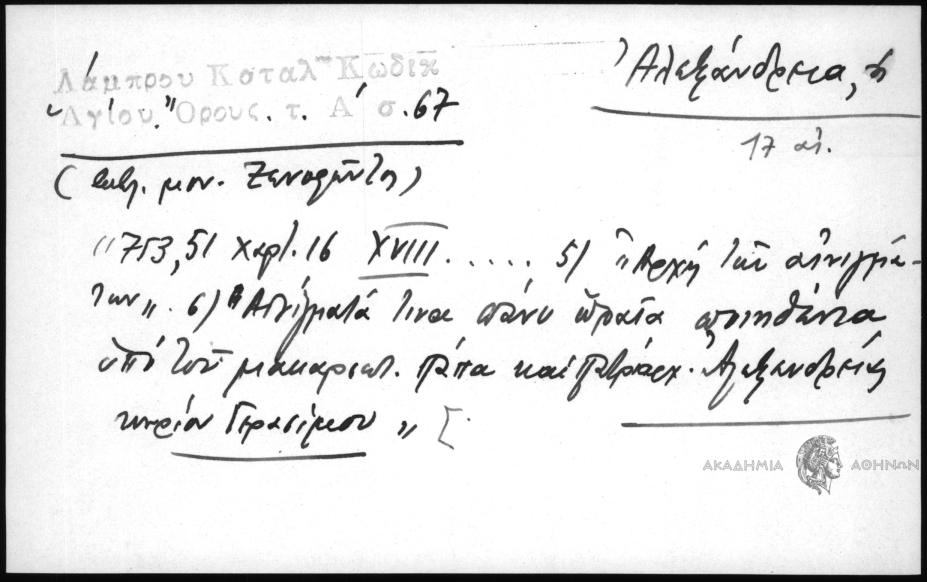 Λάμπρου Καταλ. Κωδίκ
Ἁγίου Ὄρους. τ. Α΄ σ. 67
Ἀλεξάνδρεια, ἡ
17 αἰ.
(βιβλ. μον. Ξενοφῶντος)
"753,51 χαρτ. 16 XVIII ...... 5) "Ἀρχὴ τῶν αἰνιγμά-
των". 6) "Αἰνίγματά τινα πάνυ ὡραῖα ποιηθέντα
ὑπὸ τοῦ μακαριωτ. πάπα καὶ πατριάρχ. Ἀλεξανδρείας
κυρίου Γερασίμου"
ΑΚΑΔΗΜΙΑ ΑΘΗΝΩΝ